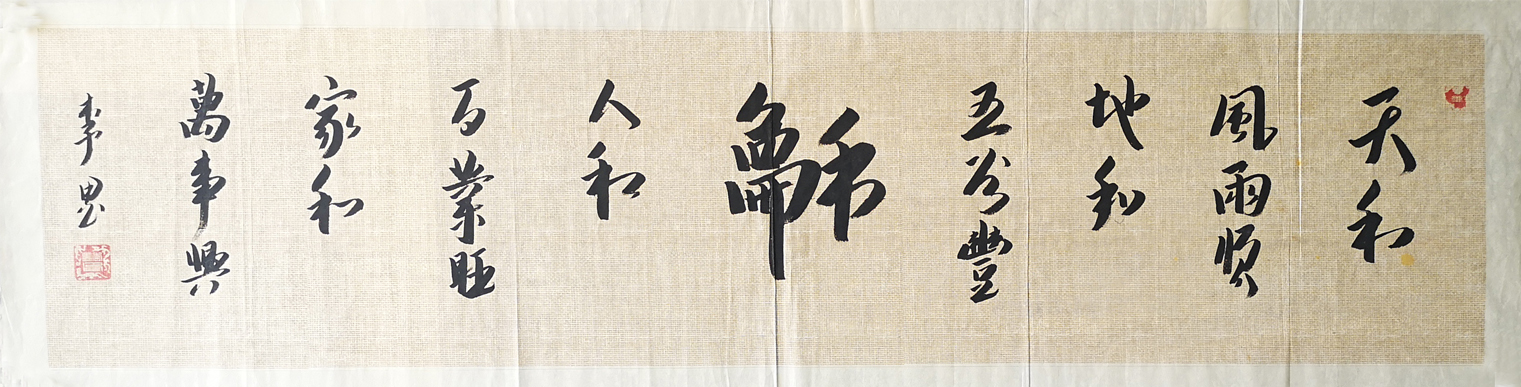 天和
風雨順
地和
五谷豐
龢
人和
百業旺
家和
萬事興
李思